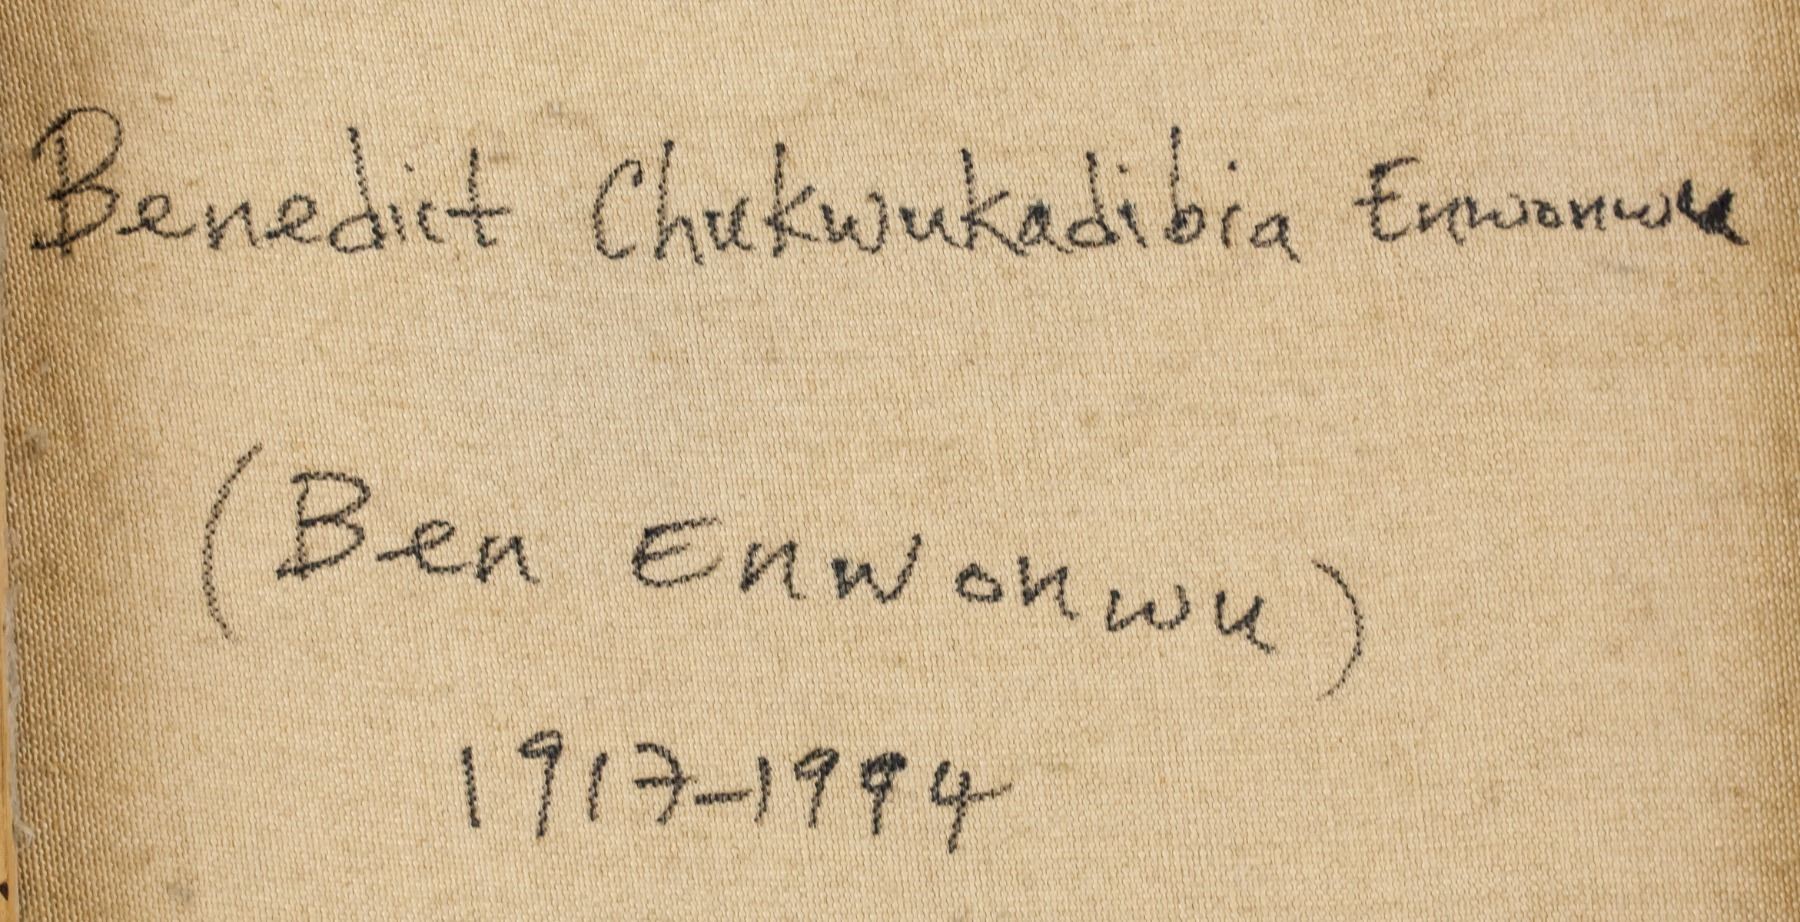 Benedict Chukwukadibia Enwonwu
(Ben Enwonwu)
1917-1994